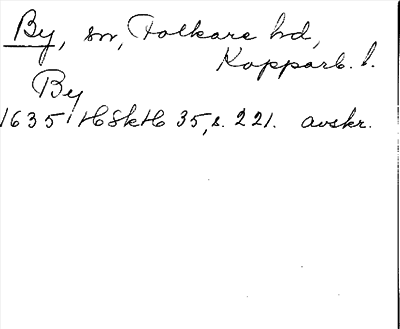 By, sn, Folkare hd,
Kopparb. l.
By
1635 HSkH 35, s. 221. avskr.